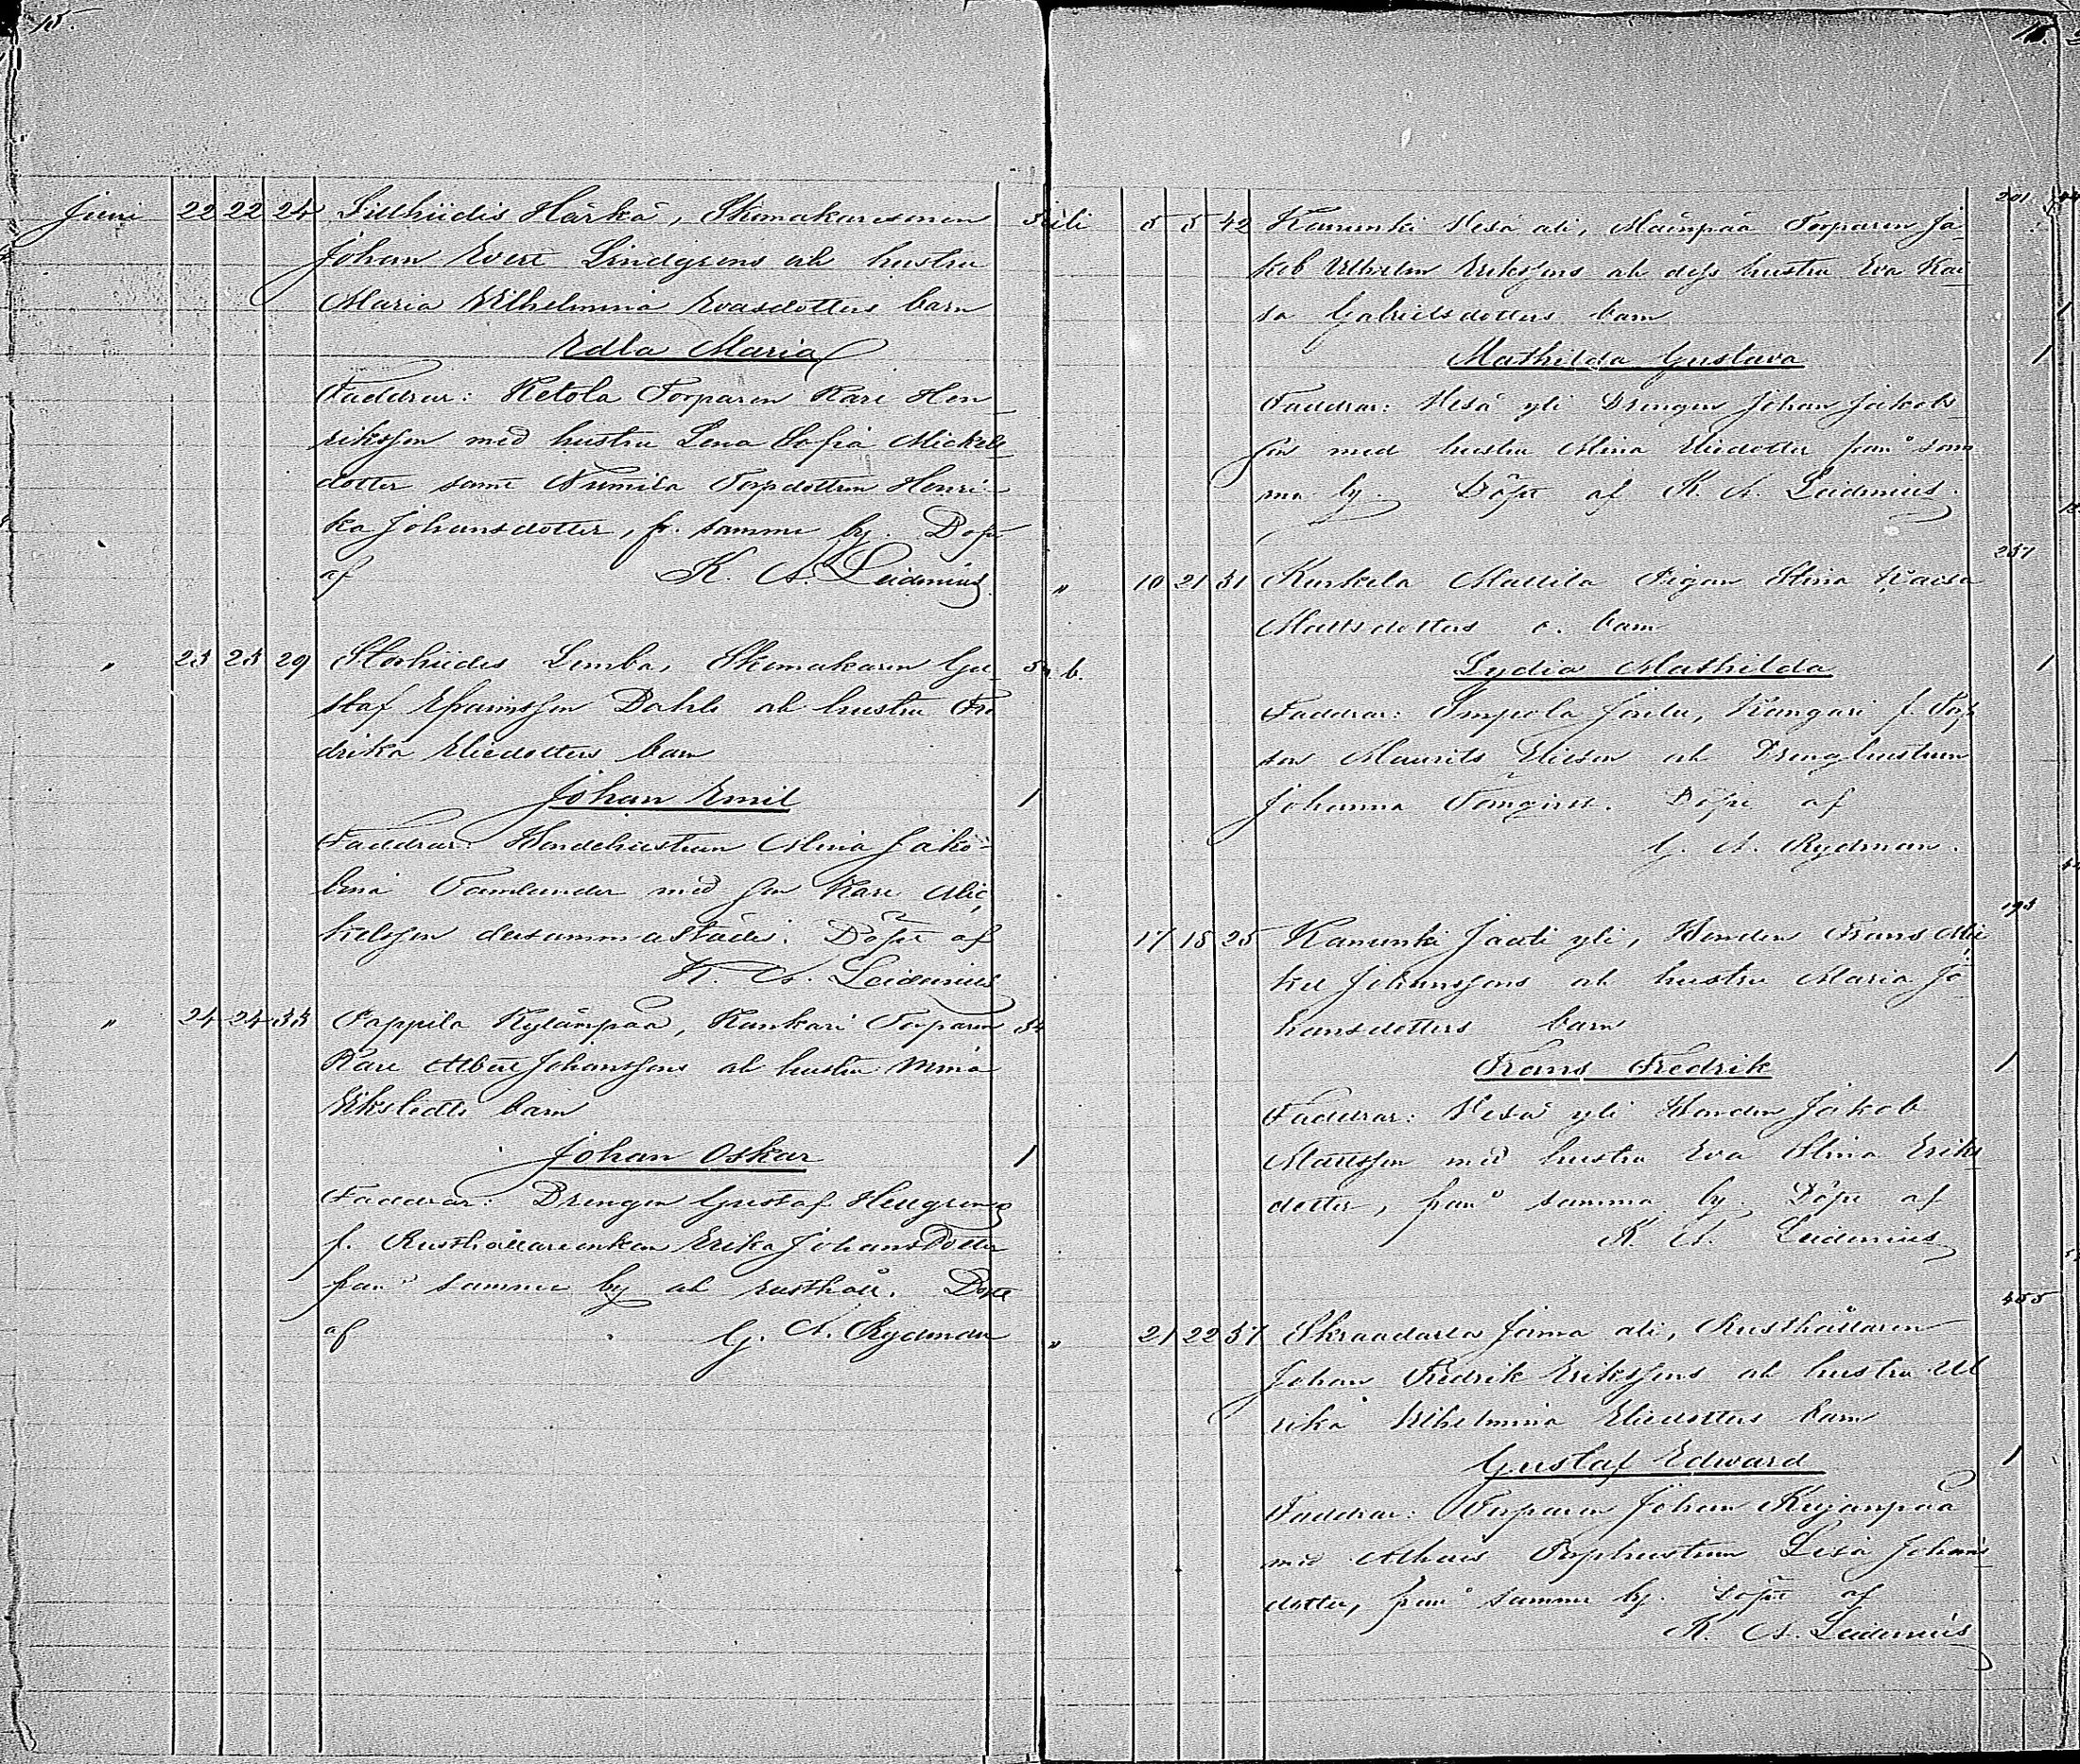 15.
Juni 22 22 24 Lillhiidis Härkä, Skomakaresonen
Johan Evert Lindgrens och hustru
Maria Wilhelmina Evasdotters barn
Edla Maria
Faddrar: Ketola Torparen Karl Hen
riksson med hustru Lena Sofia Mickels
dotter samt Numila Torpdottren Henri-
ka Johansdotter, fr. samma by. Döpt
af K. A. Leidenius
" 23 23 29 Storhiidis Lemba, Skomakaren Gu
staf Efraimsson Dahls och hustru Fre
drika Eliedotters barn
Johan Emil 1
Faddrar: Bondehustrun Mina Jako-
bina Tamlander med son Karl Mic
kelsson dersammastädes. Döpt af
K. A. Leidenius
" 24 24 33 Pappila Kylänpää, Kankari Torparen
Karl Albert Johanssons och hustru Mina
Ekstedts barn
Johan Oskar 1
Faddrar: Drengen Gustaf Hellgren o
f. Rusthållareenkan Erika Johansdotter
från samma by och rusthåll. Döpt
af G. A. Rydman
Juli 5 5 42 Kanunki Vesa ali, Mäenpää Torparen Ja
kob Vilhelm Erikssons och dess hustru Eva Kai
sa Gabrielsdotters barn 201
Mathilda Gustava 1
Faddrar: Vesa yli Drengen Johan Jakobs
son med hustru Mina Eliedotter från sam
ma by. Döpt af K. A. Leidenius.
257
" 10 21 31 Kurkela Mattila Pigan Stina Kaisa
Mattsdotters o. barn
Lydia Mathilda 1
Faddrar: Impola Kangari f.
son Maurits Elieson och Drenghustrun
Johanna Döpt af
G. A. Rydman.
193
17 18 25 Kanunki Jaati yli, Bonden Frans Mic
kel Johanssons och hustru Maria Jo
hansdotters barn
Frans Fredrik 1
Faddrar: Vesa yli Bonden Jakob
Mattsson med hustru Eva Stina Eriks
dotter, från samma by. Döpt af
K. A. Leidenius
455
" 21 22 37 Skraadarla Jama ali, Rusthållaren
Johan Fredrik Erikssons och hustru Ul
rika Wilhelmina Eliedotters barn
Gustaf Edward 1
Faddrar: Torparen Johan Kujanpää
med Torphustrun Lisa Johans
dotter, från samma by. Döpt af
K. A. Leidenius